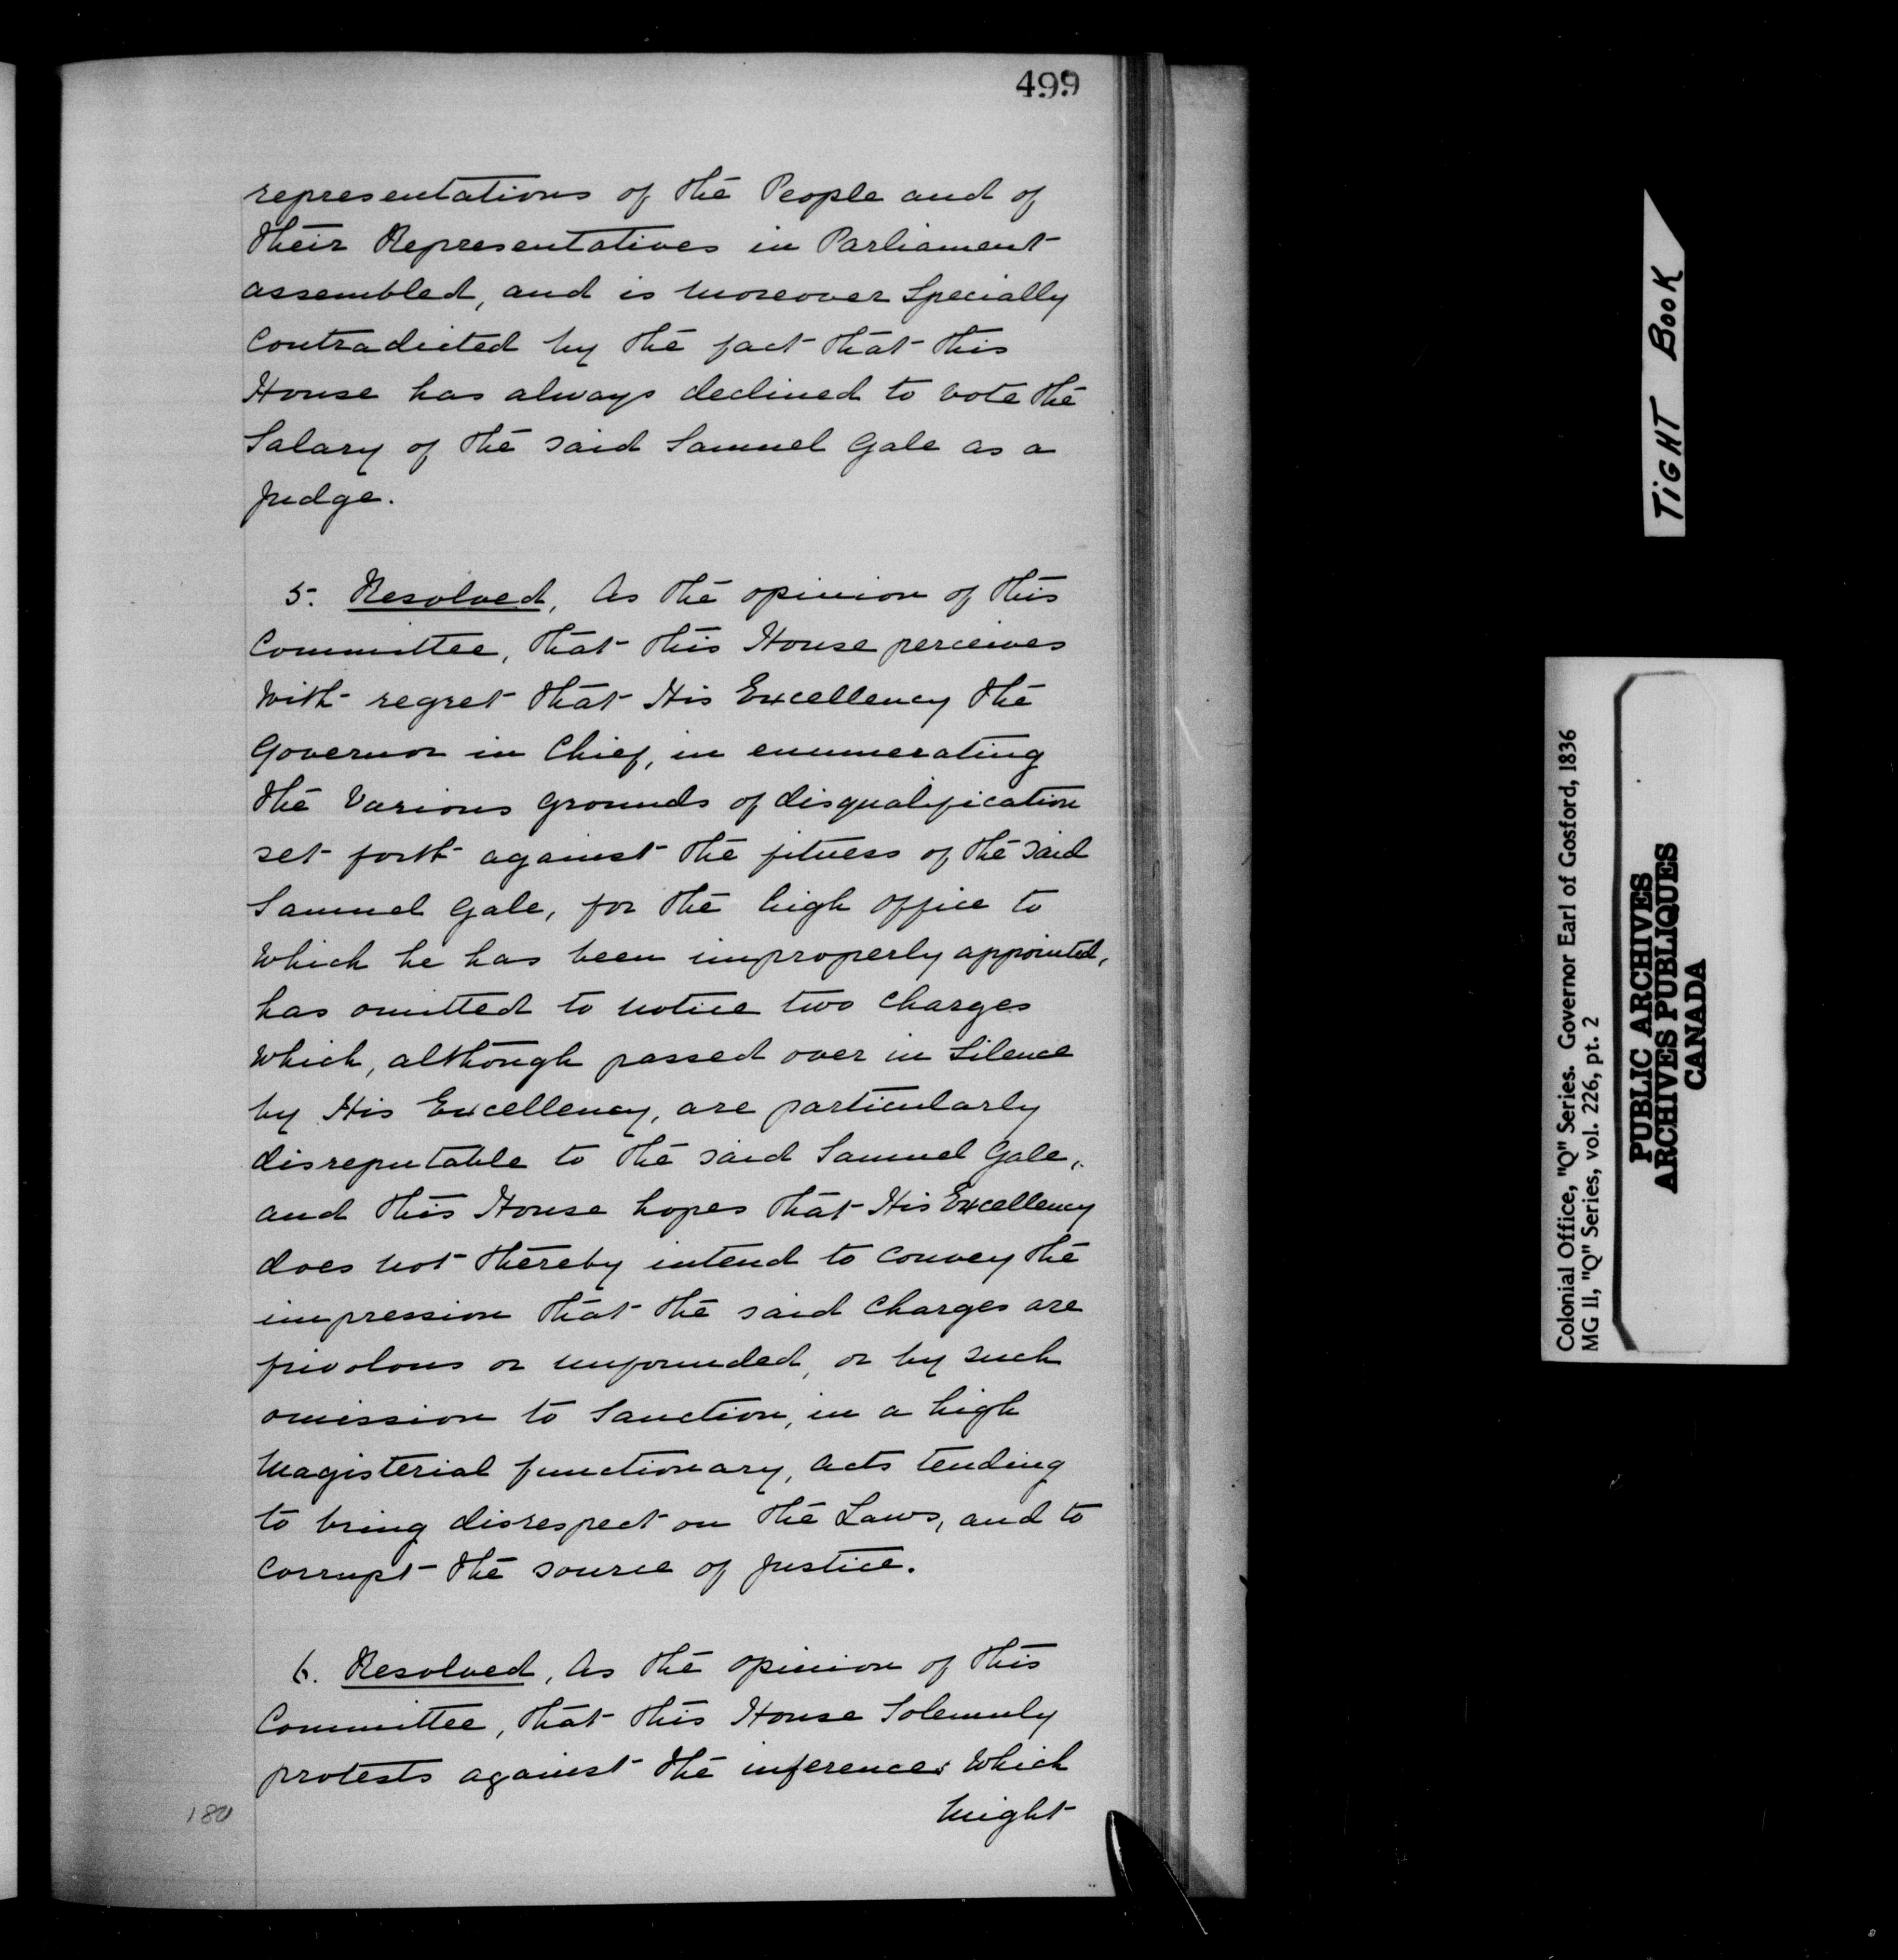 499
representations of the People and of
their Representatives in Parliament
assembled, and is moreover Specially
Contradicted by the fact that this
House has always declined to vote the
Salary of the said Samuel Gale as a
Judge.
5. Resolved, As the opinion of this
Committee, that this House perceives
With regret that His Excellency the
Governor in Chief, in enumerating
the Various grounds of disqualification
set forth against the fitness of the said
Samuel Gale, for the high office to
Which he has been improperly appointed,
has omitted to notice two Charges
Which, although passed over in Silence
by His Excellency, are particularly
disreputable to the said Samuel Gale,
and this House hopes that His Excellency
does not thereby intend to Convey the
impression that the said Charges are
frivolous or unfounded, or by such
omission to Sanction, in a high
Magisterial functionary, Acts tending
to bring disrespect on the Laws, and to
Corrupt the source of Justice.
6. Resolved, As the opinion of this
Committee, that this House Solemnly
protests against the inferences Which
Might
180
TIGHT BOOK
Colonial Office, "Q" Series. Governor Earl of Gosford, 1836
MG 11, "Q" Series, vol. 226, pt. 2
PUBLIC ARCHIVES
ARCHIVES PUBLIQUES
CANADA